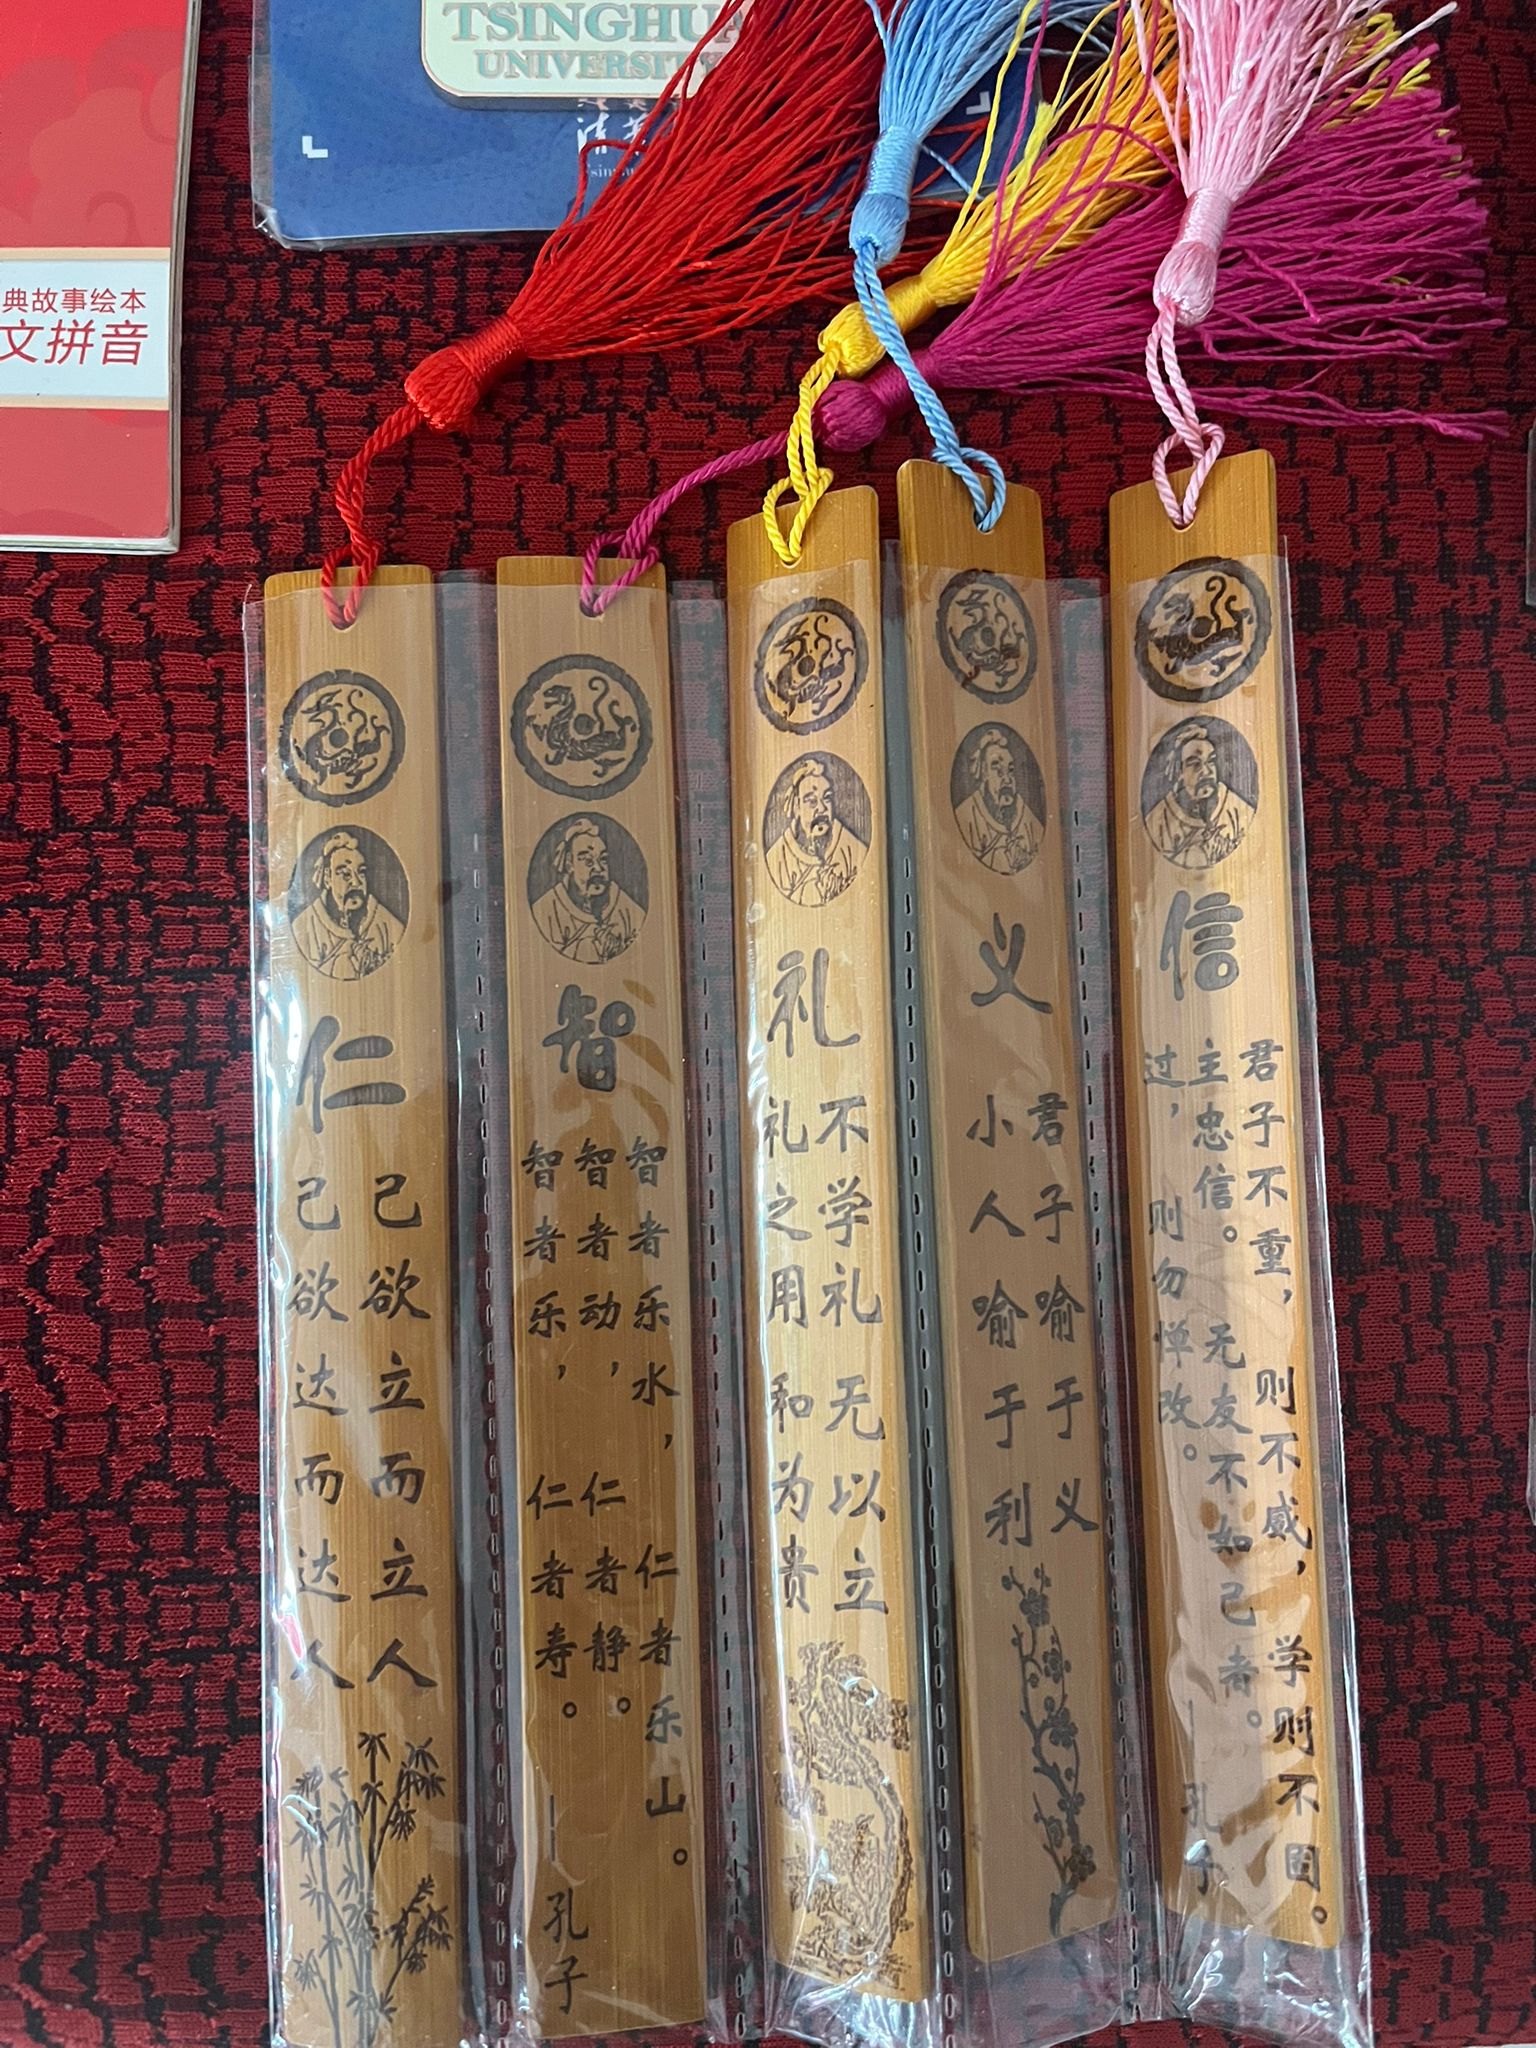 TSINGHUA
UNIVERSITY
清
典故事绘本
文拼音
仁
己欲立而立人
己欲达而达人
智
智者乐水，仁者乐山。
智者动，仁者静。
智者乐，仁者寿。
—孔子
礼
不学礼无以立
礼之用和为贵
义
君子喻于义
小人喻于利
信
君子不重，则不威，学则不固。
主忠信。无友不如己者。
过，则勿惮改。
—孔子